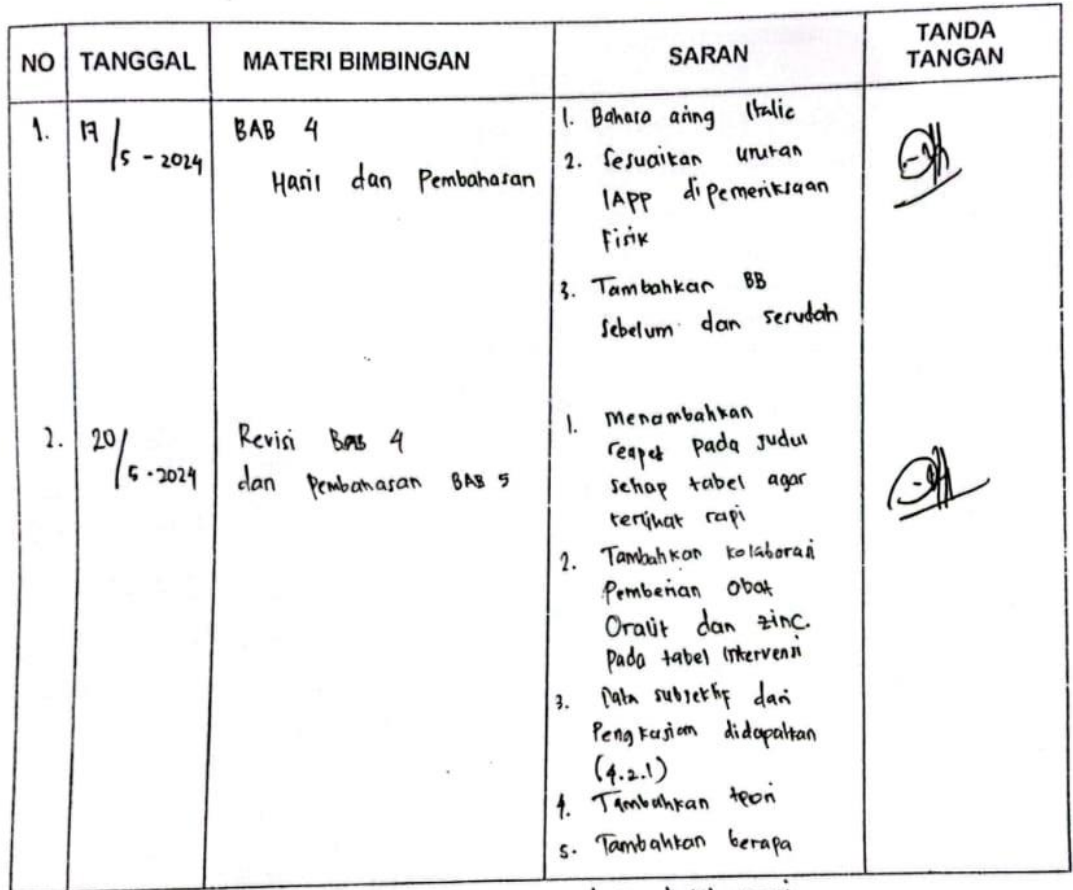 NO TANGGAL MATERI BIMBINGAN SARAN TANDA TANGAN
1. 17/5 - 2024
BAB 4
Hasil dan Pembahasan
1. Bahasa asing Italic
2. Sesuaikan urutan
IAPP di pemeriksaan
Fisik
3. Tambahkan BB
Sebelum dan sesudah
2. 20/5 - 2024
Revisi BAB 4
dan Pembahasan BAB 5
1. Menambahkan
repet pada judul
setiap tabel agar
terlihat rapi
2. Tambahkan kolaborasi
Pemberian Obat
Oralit dan zinc.
pada tabel Intervensi
3. Data subjektif dari
Pengkajian didapatkan
(4.2.1)
4. Tambahkan teori
5. Tambahkan berapa